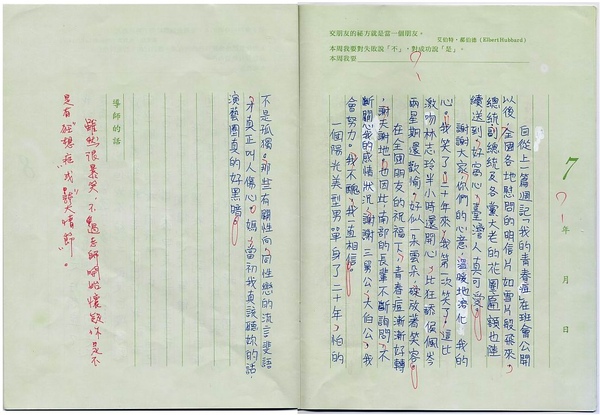 交朋友的祕方就是當一個朋友。
艾伯特．郝伯德（Elbert Hubbard）
本周我要對失敗說「不」，對成功說「是」。
本周我要
7
年 月 日
自從上一篇週記「我的青春痘」在班會公開
以後，全國各地慰問的明信片如雪片般飛來，
總統副總統及各黨大老的花圈匾額也陸
續送到，好窩心，臺灣人真可愛。
謝謝大家，你們的心意，溫暖地溶化我的
心。我笑了，二十年來，我第一次笑了，這比
激吻林志玲半小時還開心，比狂舔佩佩岑
兩星期還歡愉，好似一朵雲朵，綻放著笑容。
在全國朋友的祝福下，青春痘漸漸好轉
，謝天謝地，也因此南部的長輩不斷詢問，不
斷關心我的感情狀況，謝謝三舅公、大伯公，我
會努力。我不醜，我一直相信。
一個陽光美型男單身了二十年，怕的
不是孤獨，那些有關性向、同性戀的流言蜚語
，才真正叫人傷心，媽，當初我真該聽妳的話
演藝圈真的好黑暗。
導師的話
雖然很暴笑，不過老師開始懷疑你是不
是有“妄想症或“誇大情節”。